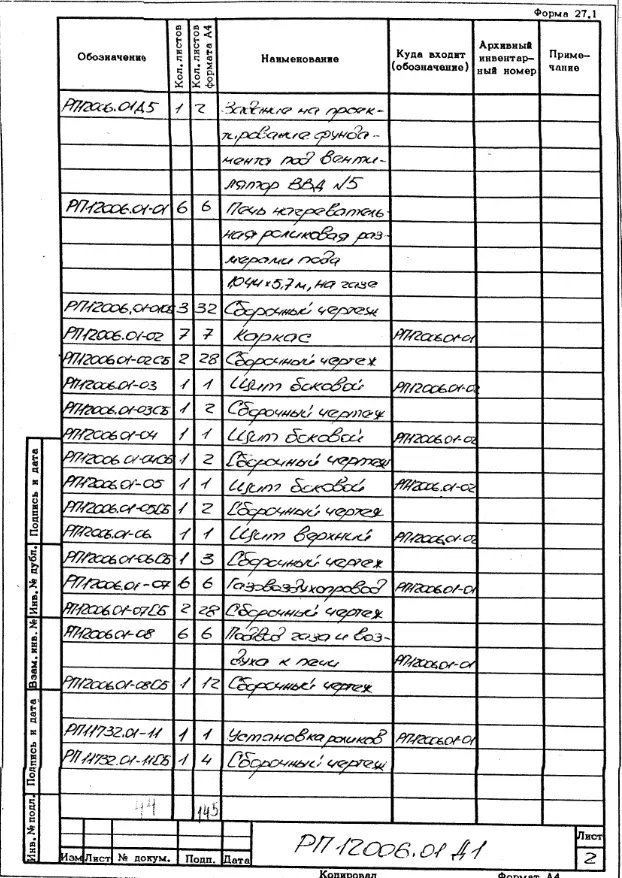 Форма 27.1
Обозначение Кол. листов Кол. листов формата А4 Наименование Куда входит (обозначение) Архивный инвентарный номер Примечание
РП12006.01Д5 1 2 Задание на проек-
тирование фунда-
мента под венти-
лятор ВВД №5
РП-12006.01-01 6 6 Печь нагреватель
ная роликовая раз-
мерами пода
1,044х5,7м, на газе
РП12006.01-01СБ 3 32 Сборочный чертеж
РП-12006.01-02 7 7 Каркас РП12006.01-01
РП12006.01-02СБ 2 28 Сборочный чертеж
РП12006.01-03 1 1 Щит боковой РП12006.01-02
РП12006.01-03СБ 1 2 Сборочный чертеж
РП12006.01-04 1 1 Щит боковой РП12006.01-02
РП12006.01-04СБ 1 2 Сборочный чертеж
РП12006.01-05 1 1 Щит боковой РП12006.01-02
РП12006.01-05СБ 1 2 Сборочный чертеж
РП12006.01-06 1 1 Щит верхний РП12006.01-02
РП12006.01-06СБ 1 3 Сборочный чертеж
РП12006.01-07 6 6 Газовоздухопровод РП12006.01-01
РП12006.01-07СБ 2 28 Сборочный чертеж
РП12006.01-08 6 6 Подвод газа и воз-
духа к печи РП12006.01-01
РП12006.01-08СБ 1 12 Сборочный чертеж
РП11732.01-11 1 1 Установка роликов РП12006.01-01
РП11732.01-11СБ 1 4 Сборочный чертеж
44 145
Инв. № подл. Подпись и дата Взам. инв. № Инв. № дубл. Подпись и дата
РП-12006.01 Д1
Лист
2
Изм Лист № докум. Подп. Дата
Копировал Формат А4